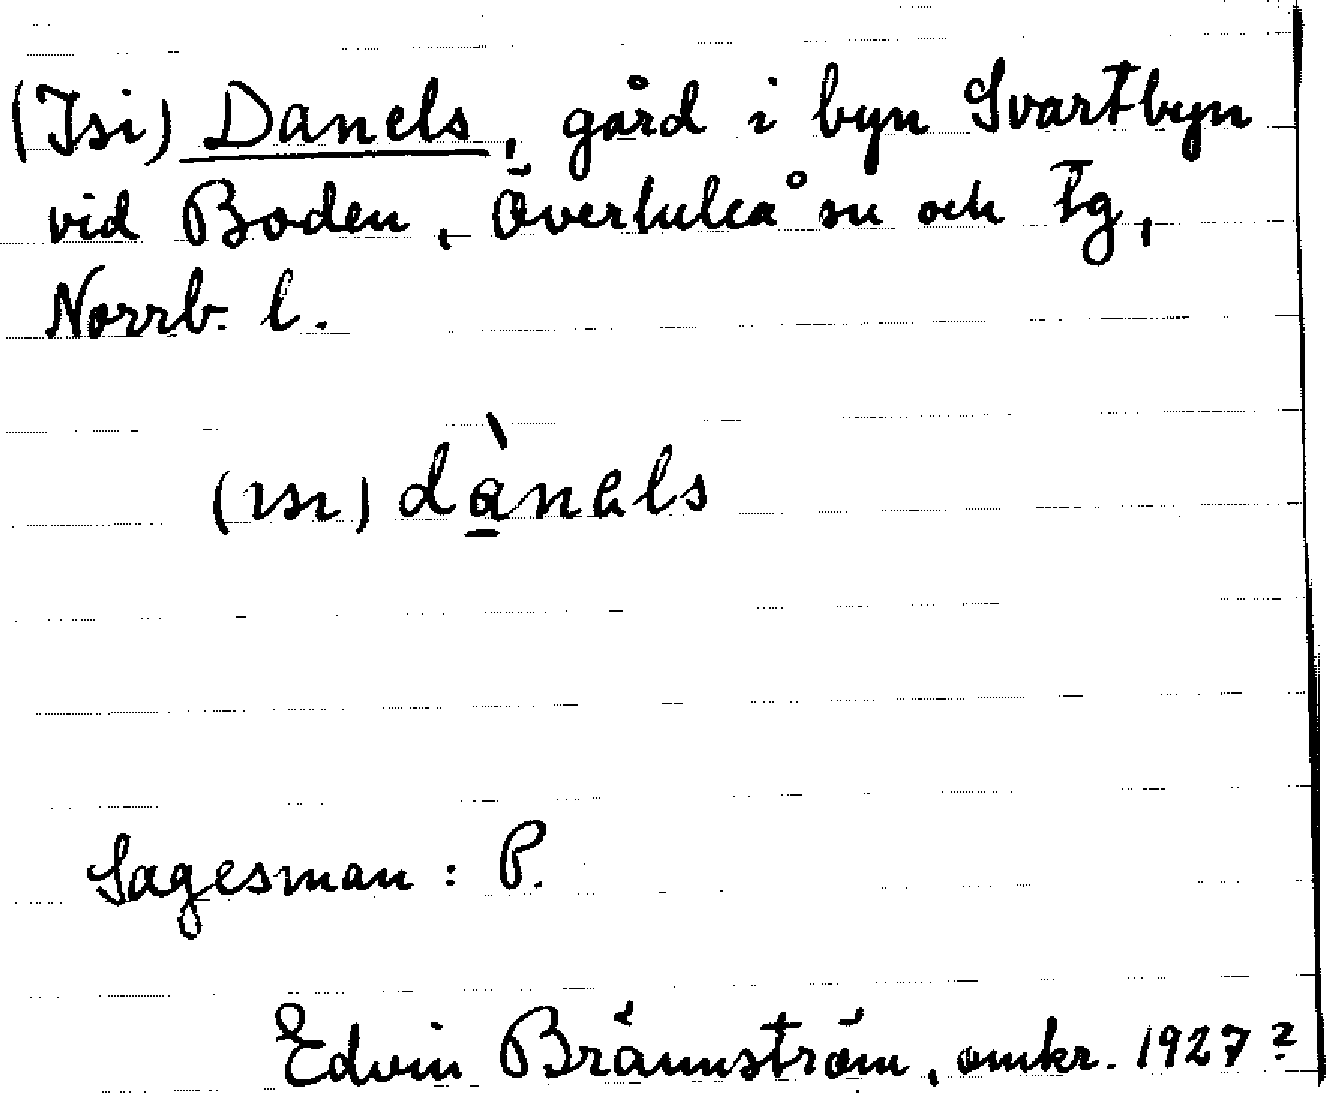 (Isi) Danels, gård i byn Svartbyn
vid Boden, Överluleå sn och tg,
Norrb. l.
(ısı) dànəls
Sagesman: P.
Edvin Brännström, omkr. 1927?